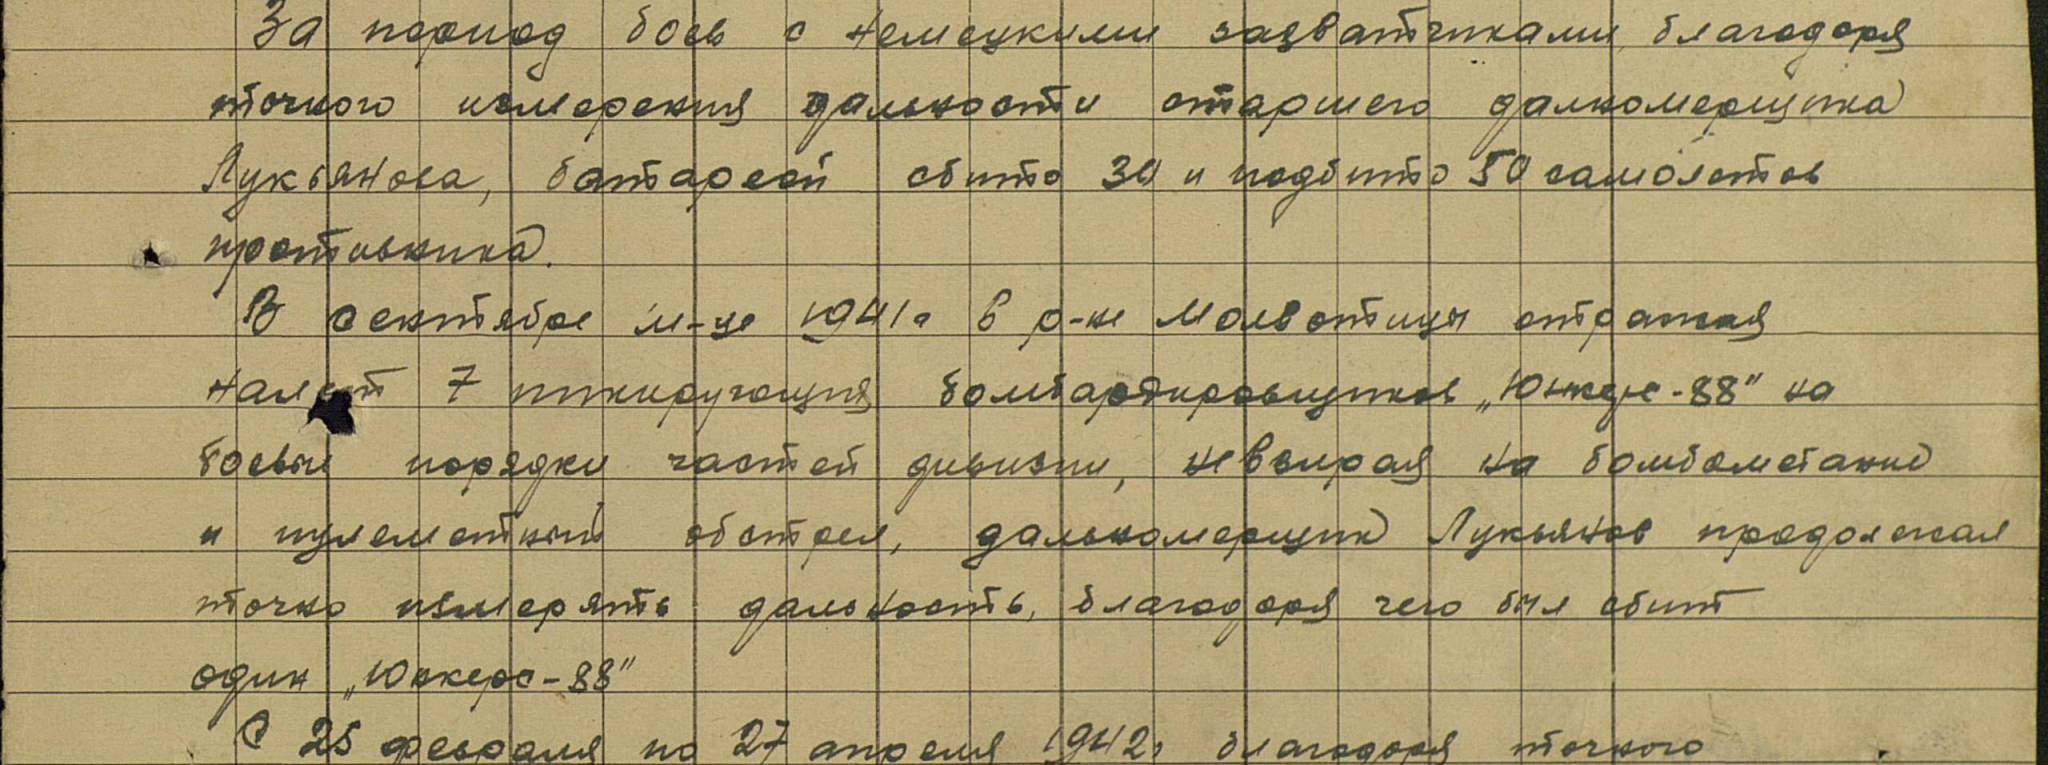 За период боев с немецкими захватчиками, благодоря
точного измерения дальности старшего далномерщика
Лукьянова, батареей сбито 30 и подбито 50 самолетов
противника.
В сентябре м-це 1941г в р-не Молвотицы отражая
налет 7 пикирующих бомбардировщиков „Юнкерс-88" на
боевые порядки частей дивизии, невзирая на бомбометание
и пулеметный обстрел, дальномерщик Лукьянов продолжал
точно измерять дальность, благодоря чего был сбит
один „Юнкерс-88"
С 25 февраля по 27 апреля 1942г благодоря точного